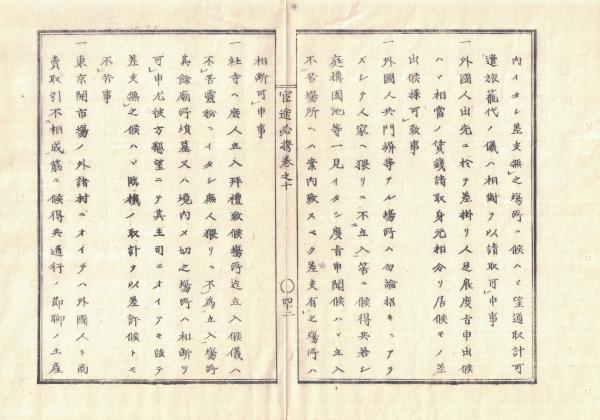 内イタシ差支無之場所ニ候ハヽ望通取計可
遣旅籠代ノ儀ハ相對ヲ以請取可申事
一外國人出先ニ於テ差掛リ人足雇度旨申出候
ハヽ相當ノ賃錢請取身元相分リ居候モノ差
出候様可致事
一外國人共門塀等アル場所ハ勿論招キニアラ
ズシテ人家ヘ猥リニ不立入筈ニ候得共若シ
庭構園池等一見イタシ度旨申聞候ハヽ立入
不苦場所ヘハ案内致スベク差支有之場所ハ
官途必携巻之十
四十二
相断可申事
一社寺ハ庶人立入拝禮致候場所迄立入候儀ハ
不苦靈秘ニイタシ庶人猥リニ不爲立入場所
其餘廟所墳墓又ハ境内〆切之場所ハ相断リ
可申尤彼方懇望ニテ其主司ニオイテモ強テ
差支無之候ハヽ臨機ノ取計ヲ以差許候トモ
不苦事
一東京開市場ノ外諸村ニオイテハ外國人ト商
賣取引不相成筋ニ候得共通行ノ節聊ノ土産